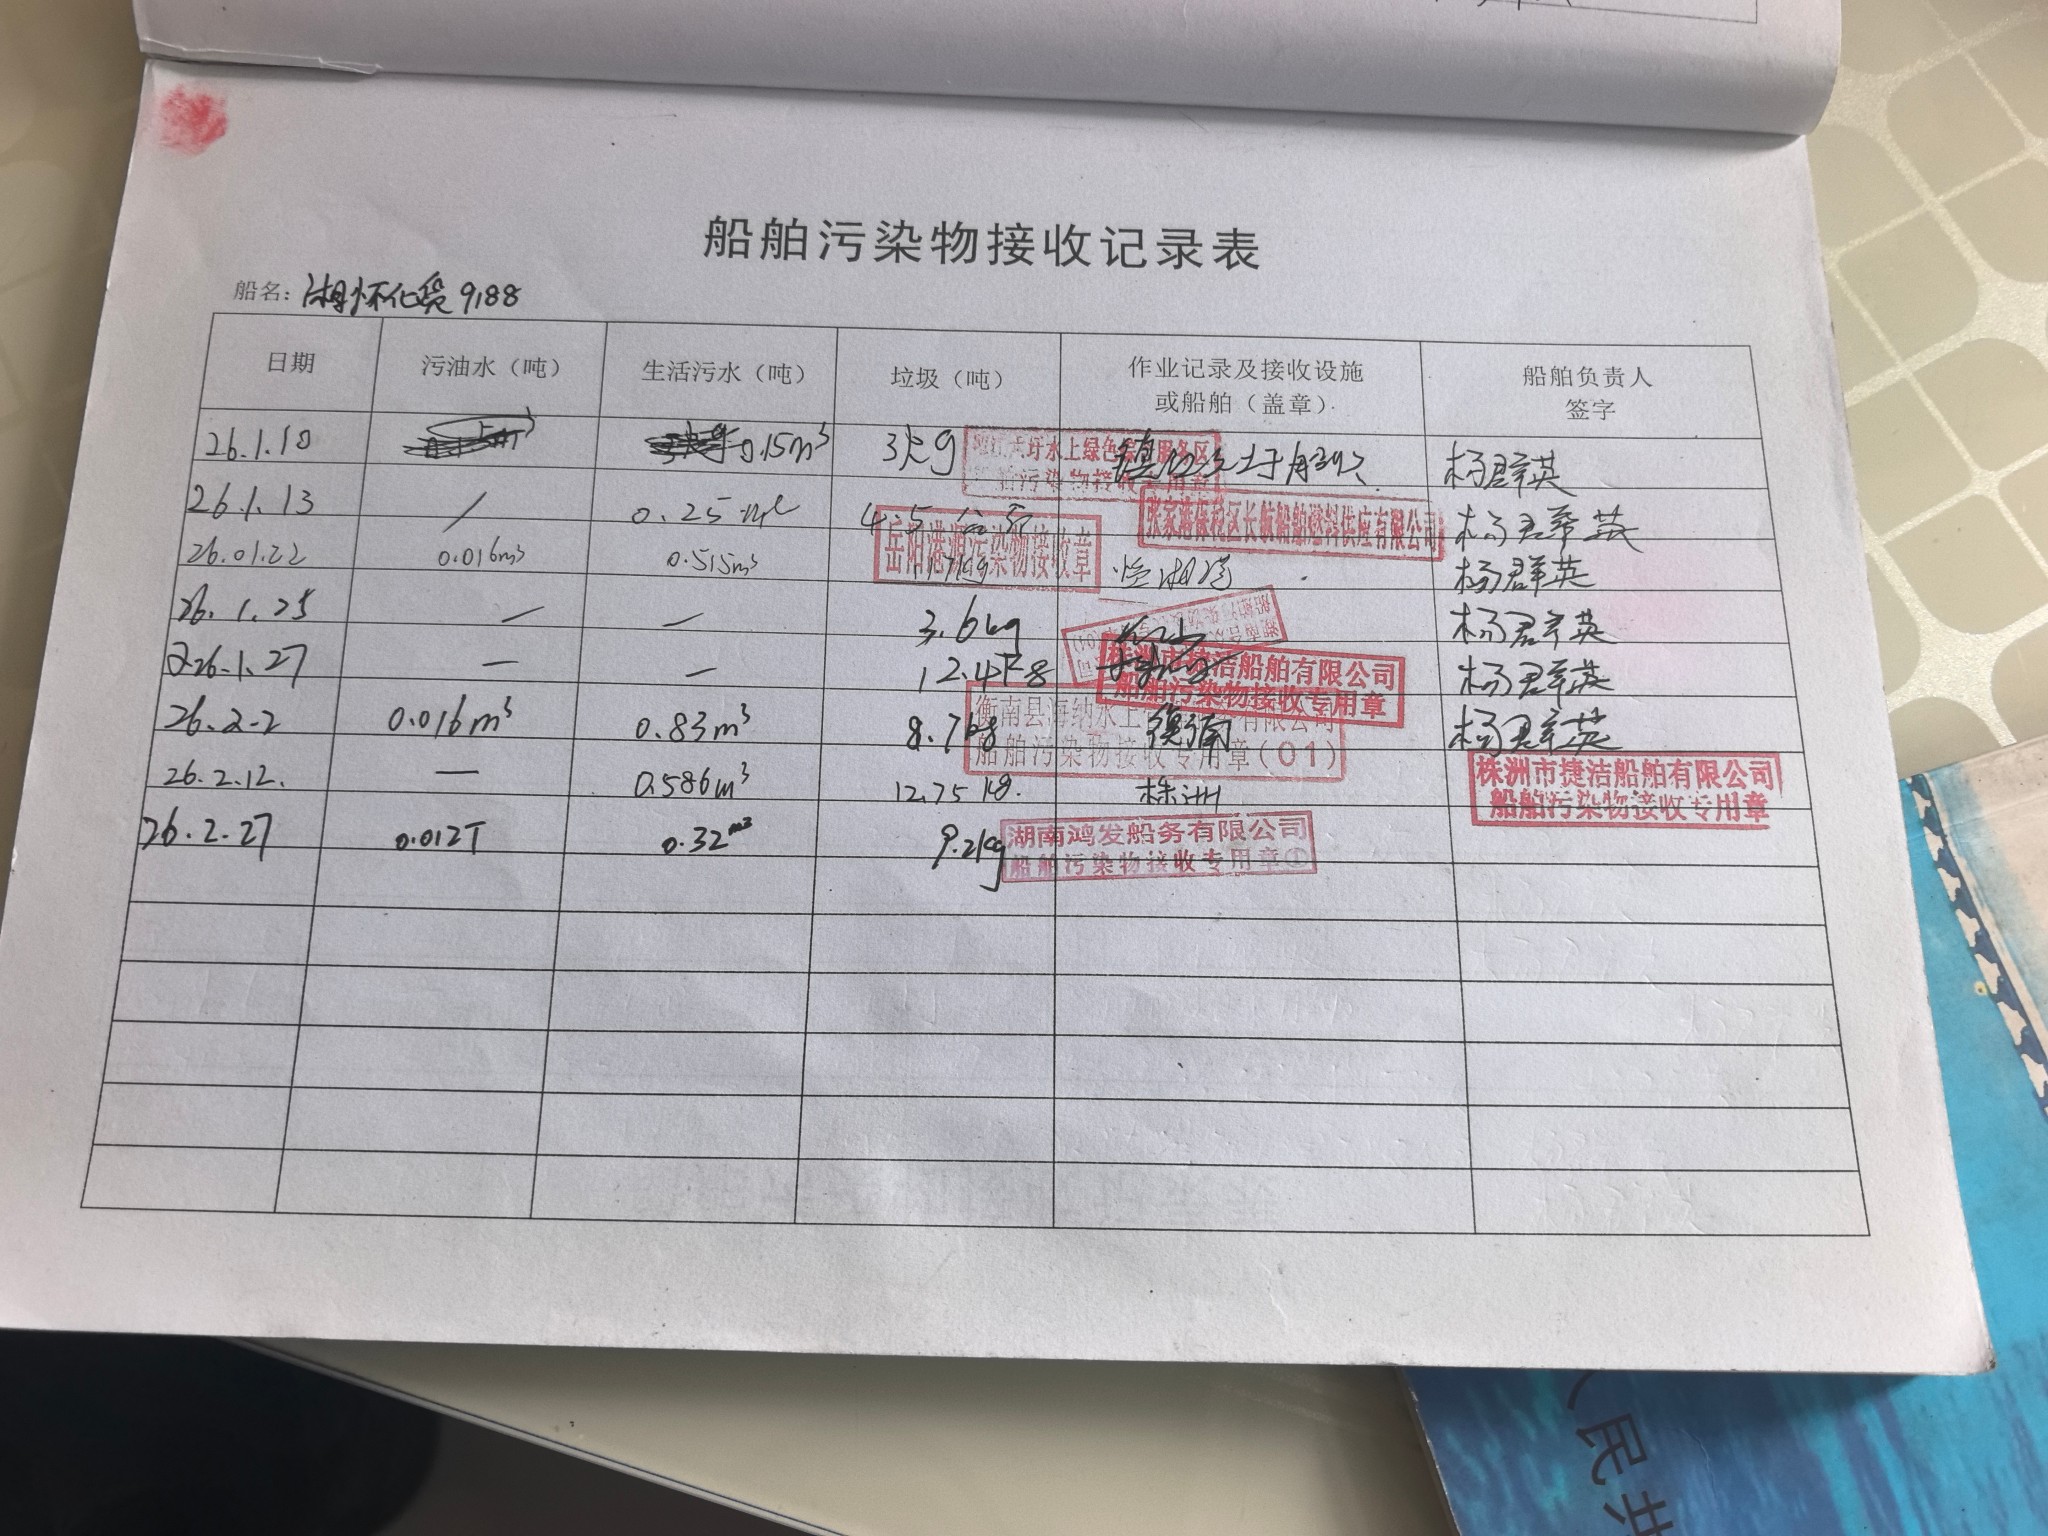 船舶污染物接收记录表
船名: 湘怀化货9188
日期 污油水（吨） 生活污水（吨） 垃圾（吨） 作业记录及接收设施或船舶（盖章） 船舶负责人签字
26.1.10 0.15m³ 3kg 水上绿色综合服务区 船舶污染物接收专用章 杨群英
26.1.13 / 0.25 4.5公斤 张家港保税区长航船舶燃料供应有限公司 杨群英
26.01.22 0.016m³ 0.515m³ 岳阳港源污染物接收章 杨群英
26.1.25 — — 3.6kg 杨群英
26.1.27 — — 12.4 株洲市捷洁船舶有限公司 船舶污染物接收专用章 杨群英
26.2.2 0.016m³ 0.83m³ 8.7kg 衡南 衡南县海纳水上有限公司 船舶污染物接收专用章(01) 杨群英
26.2.12. — 0.586m³ 12.75kg. 株洲 株洲市捷洁船舶有限公司 船舶污染物接收专用章
26.2.27 0.012T 0.32m³ 9.2kg 湖南鸿发船务有限公司 船舶污染物接收专用章①
人民共